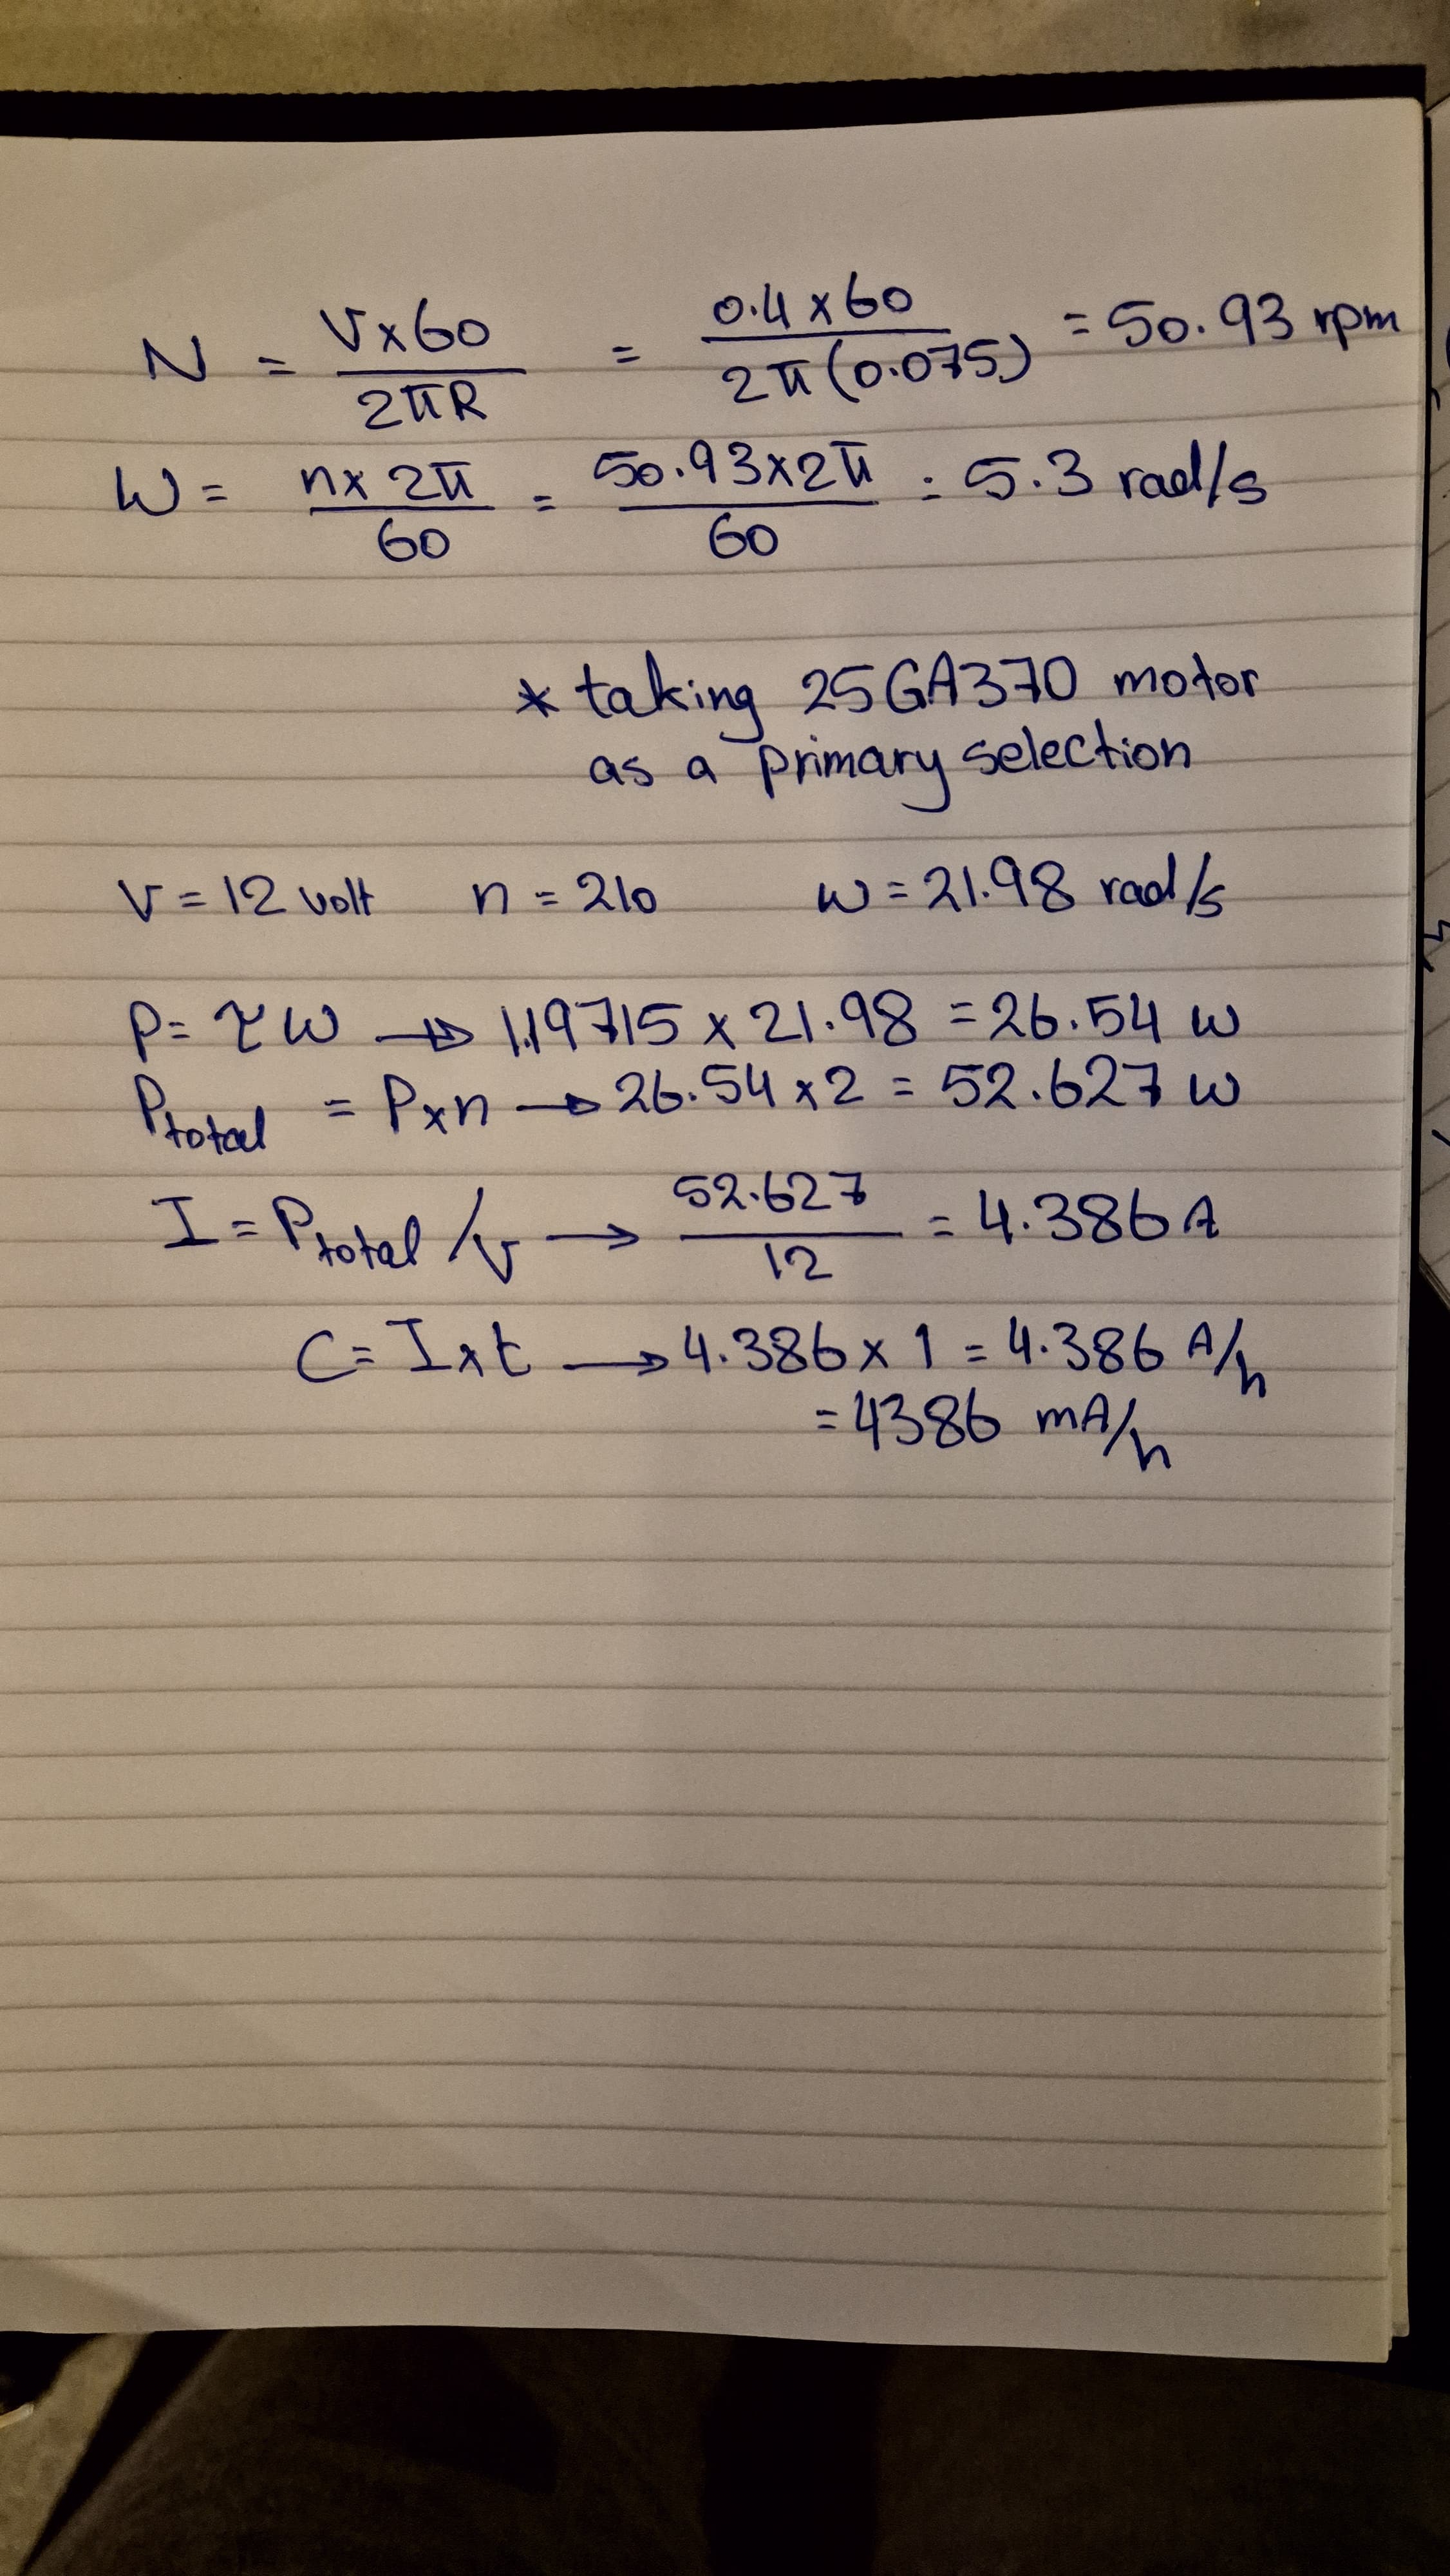 N = V×60 / 2πR = 0.4×60 / 2π(0.075) = 50.93 rpm
W = n×2π / 60 = 50.93×2π / 60 = 5.3 rad/s
* taking 25GA370 motor
as a primary selection
V = 12 volt n = 210 ω = 21.98 rad/s
P = τω → 1.19715 × 21.98 = 26.54 W
Ptotal = P×n → 26.54×2 = 52.627 W
I = Ptotal/V → 52.627 / 12 = 4.386 A
C = I×t → 4.386 × 1 = 4.386 A/h
= 4386 mA/h